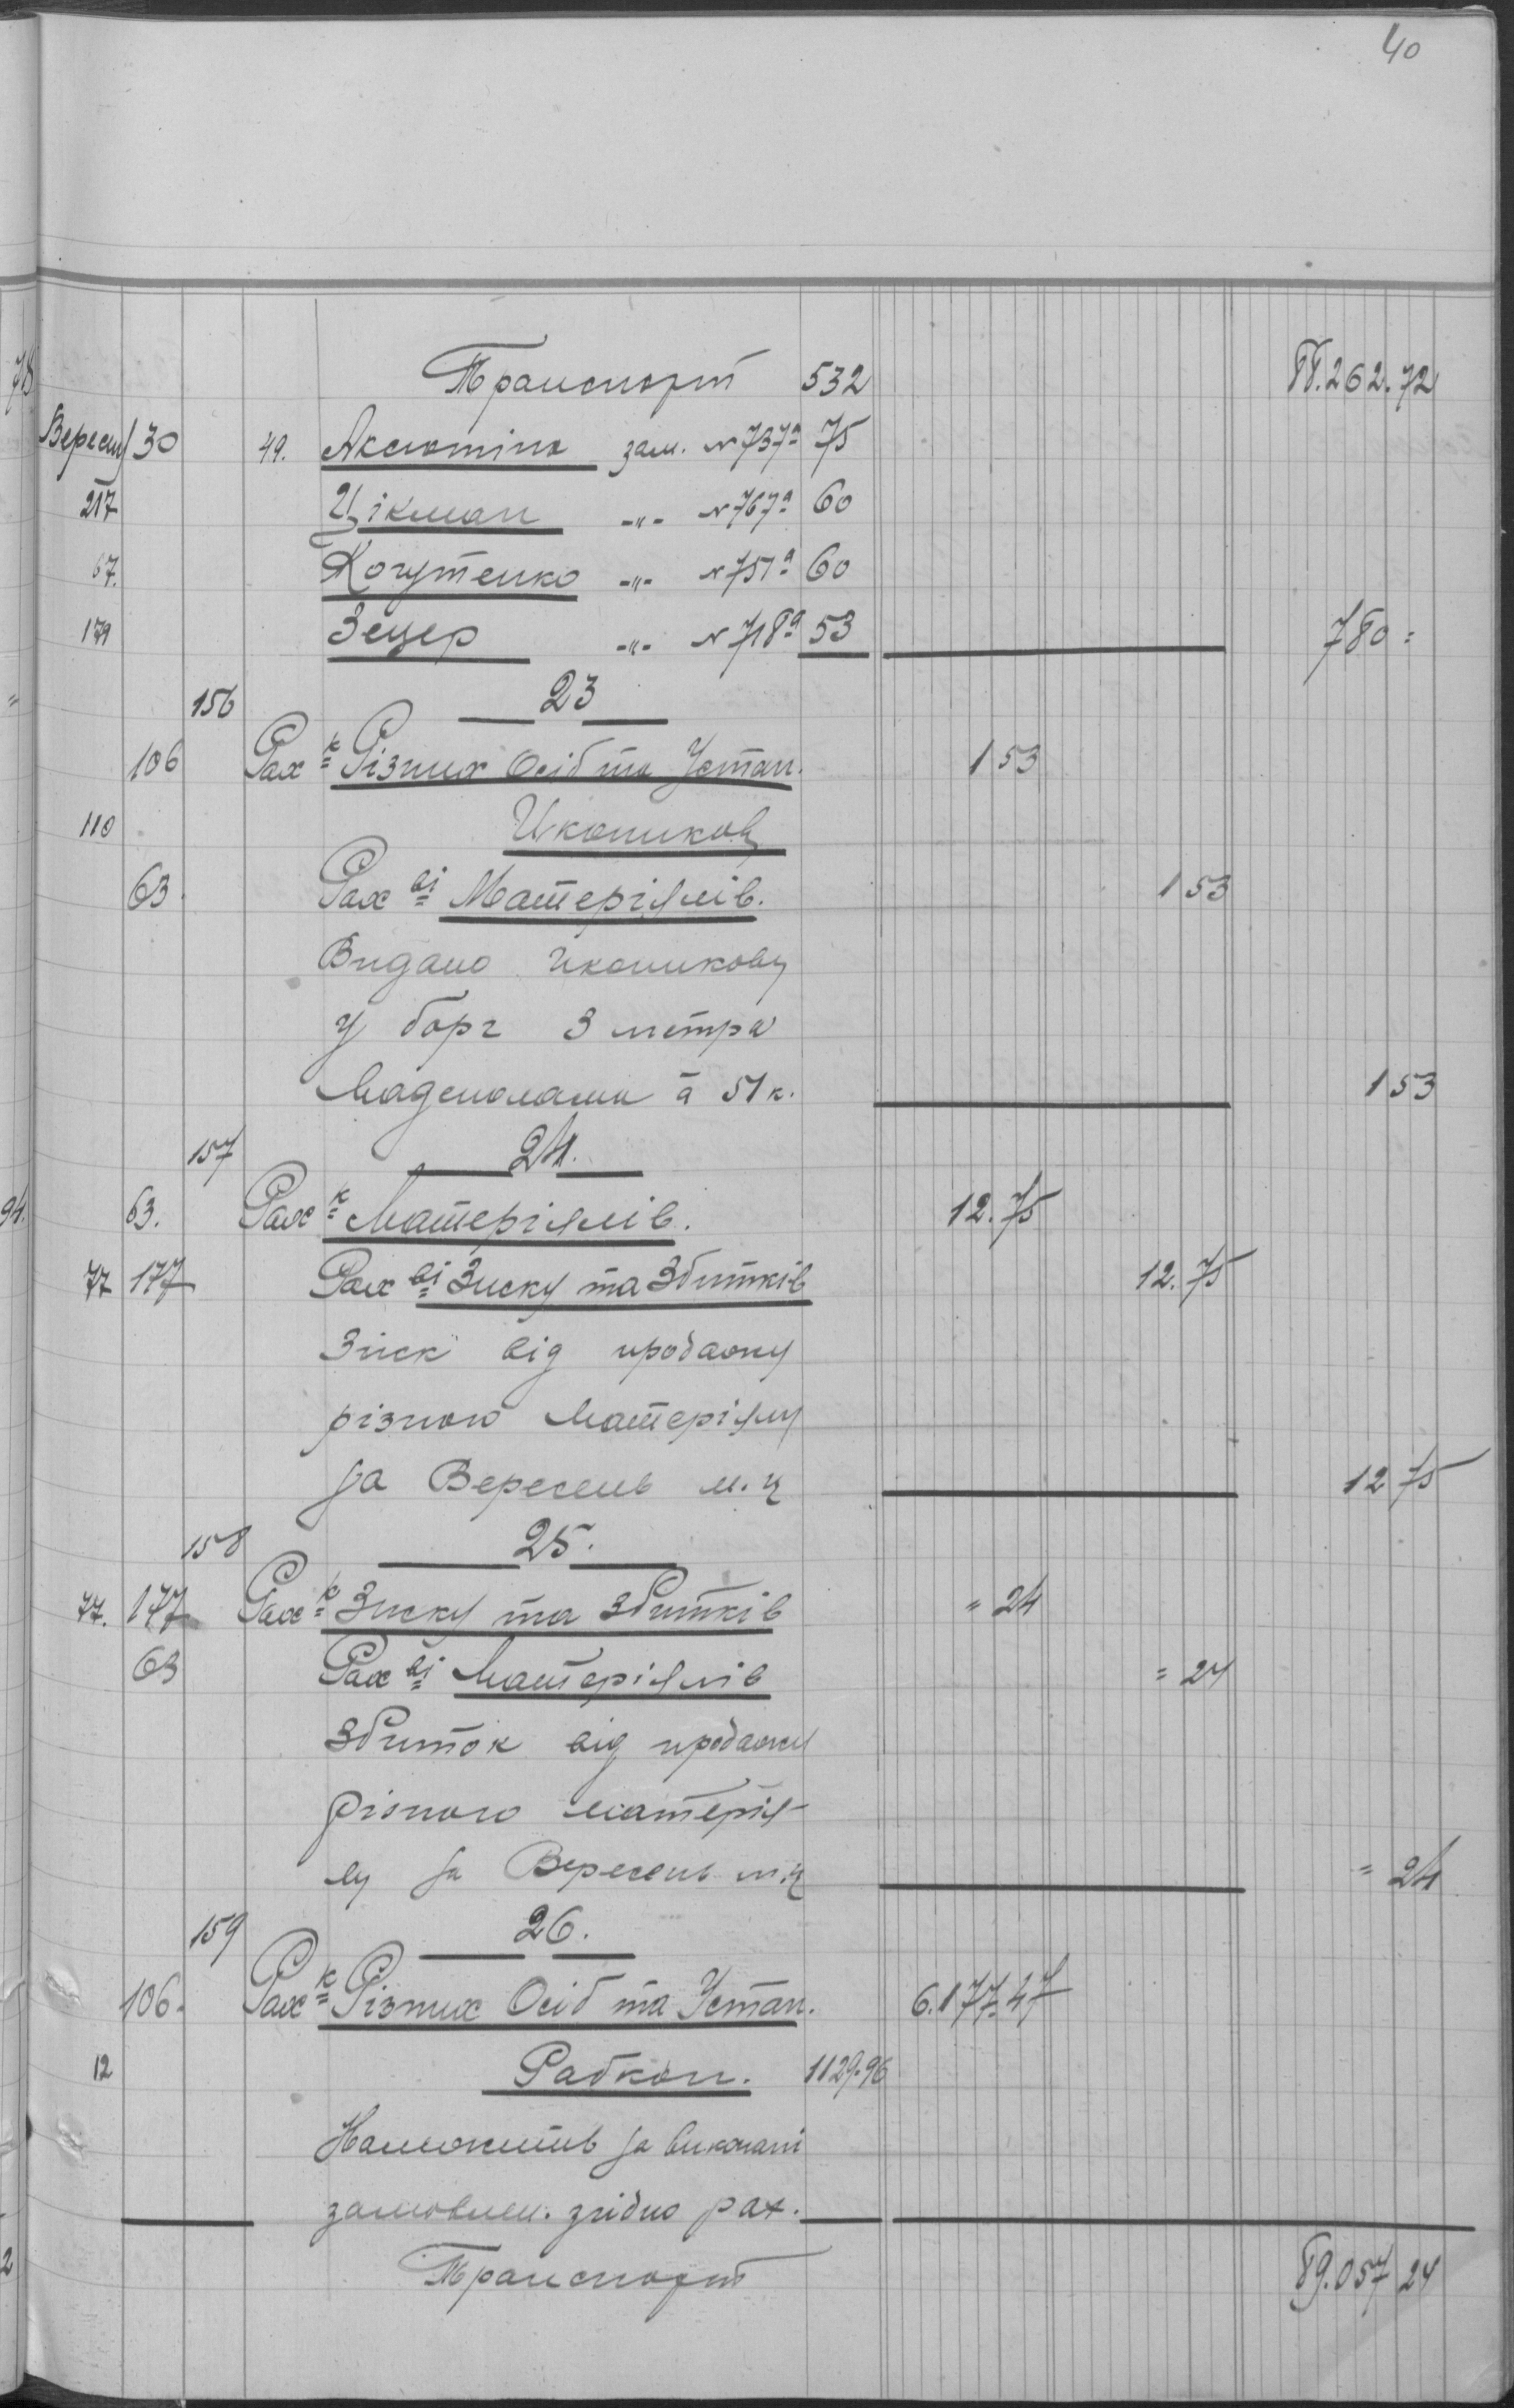 40
Транспорт 532 88.262.72
Вересн 30 49. Аксютіна зам. №737а 75
217 Цікман -"- №767а 60
67. Когутенко -"- №751а 60
179 Зецер -"- №718а 53 780=
156 23
106 Рах к Різних Осіб та Устан. 1 53
110 Иконикову
63. Рах ві Матеріялів. 1 53
Видано Иконикову
у борг 3 метра
Мадеполаму à 51 к. 1 53
157 24.
63. Рах к Матеріялів. 12.75
77 177 Рах ві Зиску та Збитків 12.75
Зиск від продажу
різного матеріялу
за Вересень м.ц 12 75
158 25.
77. 177 Рах к Зиску та Збитків = 24
63 Рах ві Матеріялів = 24
Збиток від продажу
різного матерія-
лу за Вересень м.ц = 24
159 26.
106. Рах к Різних Осіб та Устан. 6.177.47
12 Рабкоп. 1129.96
Належить за виконані
замовлен. згідно рах.
Транспорт 89.057 24